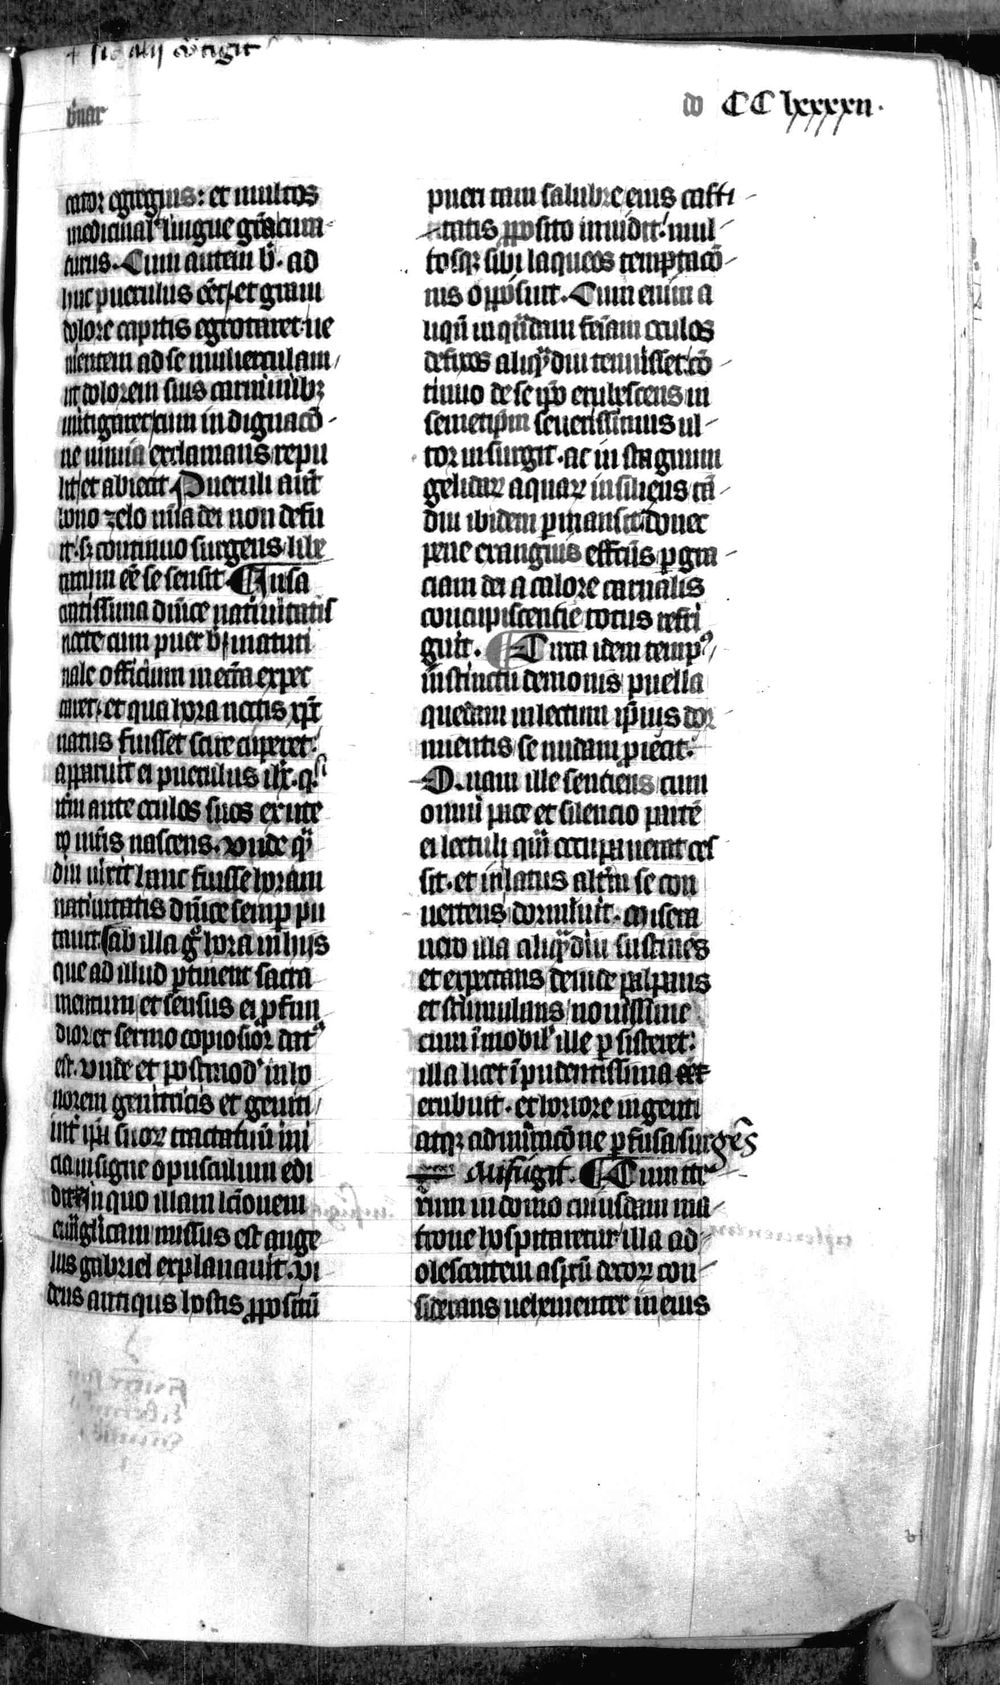 bernar do CC lxxxxii.
cator egregius: et multos
medicinal' lingue gr̄a cura
turus. Cum autem b̄. ad
huc puerulus eēt et graui
dolore capitis egrotaret ue
nientem ad se mulierculam
ut dolorem suis carminibꝫ
mitigaret cum indignacō
ne nimia exclamans repu
lit et abiecit Pueruli aūt
bono zelo mīa dei non defu
it. sꝫ continuo surgens libe
ratum eē se sensit. In sa
cratissima dn̄ice natiuitatis
nocte cum puer b̄. matuti
nale officium in ecc̄ia expec
taret, et qua hora noctis xp̄c
natus fuisset scire cuperet.
apparuit ei puerulus ihc̄. qͣsi
itm̄ ante oculos suos ex ute
ro mr̄is nascens. vnde qͣ
diu uixit hanc fuisse horam
natiuitatis dn̄ice semp̱ pu
tauit. ab illa gͦ hora in hijs
que ad illud ꝑtinent sacra
mentum et sensus ei ꝓfun
dior et sermo copiosior datꝰ
est. Unde et postmodͫ in ho
norem genitricis et geniti
int̄ ip̄a suoꝝ tractatuū ini
cia insigne opusculum edi
dit in quo illam lc̄ionem
euāgl̄icam missus est ange
lus gabriel explanauit. vi
dens antiqus hostis ꝓpositū
pueri tam salubre eius casti
tatis ꝓposito inuidit. mul
tosqꝫ sibi laqueos temptacō
nis opposuit. Cum enim a
liqn̄ in qͣdam fēiam oculos
defixos aliqͣdiu tenuisset. cō
tinuo de se ip̄o erubescens in
semetip̄m seuerissimus ul
tor insurgit. ac in stagnum
gelidaꝝ aquaꝝ insiliens tā
diu ibidem ꝑmansit donec
pene exanguis effc̄us ꝑ gra
ciam dei a calore carnalis
concupiscentie totus refri
guit. Circa idem tempꝰ
instinctu demonis puella
quedam in lectum ip̄ius dor
mientis se nudam ꝓiecit.
Quam ille senciens cum
omni pace et silencio partē
ei lectuli quā occupauerat ces
sit. et in latus altm̄ se con
uertens dormiuit. at misera
uero illa aliqͣdiu sustinēs
et expectans deinde palpans
et stimulans nouissime
cum īmobil' ille ꝑsisteret:
illa licet īpudentissima eēt
erubuit. et horrore ingenti
atqꝫ admiracōne ꝑfusa surgēs
aufugit. Cum ite
rum in domo cuiusdam ma
trone hospitaretur illa ad
olescentem aspectu decoꝝ con
siderans uehementer in eius